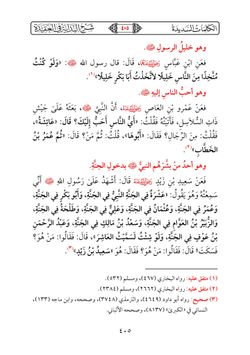 الكلمات السديدة
٤٠٥
شرح البداية في العقيدة
وهو خليلُ الرسولِ ﷺ.
فعَنِ ابْنِ عَبَّاسٍ رَضِيَ اللَّهُ عَنْهُمَا، قَالَ: قال رسول الله ﷺ: «وَلَوْ كُنْتُ
مُتَّخِذًا مِنَ النَّاسِ خَلِيلًا لاتَّخَذْتُ أَبَا بَكْرٍ خَلِيلًا»(١).
وهو أحبُّ الناسِ إليهِ ﷺ.
فعَنْ عَمْرِو بْنِ العَاصِ رَضِيَ اللَّهُ عَنْهُ، أَنَّ النَّبِيَّ ﷺ، بَعَثَهُ عَلَى جَيْشِ
ذَاتِ السُّلاسِلِ، فَأَتَيْتُهُ فَقُلْتُ: «أَيُّ النَّاسِ أَحَبُّ إِلَيْكَ؟ قَالَ: «عَائِشَةُ»،
فَقُلْتُ: مِنَ الرِّجَالِ؟ فَقَالَ: «أَبُوهَا»، قُلْتُ: ثُمَّ مَنْ؟ قَالَ: «ثُمَّ عُمَرُ بْنُ
الخَطَّابِ»(٢).
وهو أحدُ مَنْ بشَّرَهُم النبيُّ ﷺ بدخولِ الجنَّةِ.
فعَنْ سَعِيدِ بْنِ زَيْدٍ رَضِيَ اللَّهُ عَنْهُ، قَالَ: أَشْهَدُ عَلَى رَسُولِ اللهِ ﷺ أَنِّي
سَمِعْتُهُ وَهُوَ يَقُولُ: «عَشْرَةٌ فِي الجَنَّةِ النَّبِيُّ فِي الجَنَّةِ، وَأَبُو بَكْرٍ فِي الجَنَّةِ،
وَعُمَرُ فِي الجَنَّةِ، وَعُثْمَانُ فِي الجَنَّةِ، وَعَلِيٌّ فِي الجَنَّةِ، وَطَلْحَةُ فِي الجَنَّةِ،
وَالزُّبَيْرُ بْنُ العَوَّامِ فِي الجَنَّةِ، وَسَعْدُ بْنُ مَالِكٍ فِي الجَنَّةِ، وَعَبْدُ الرَّحْمَنِ
بْنُ عَوْفٍ فِي الجَنَّةِ، وَلَوْ شِئْتُ لَسَمَّيْتُ العَاشِرَ»، قَالَ: فَقَالُوا: مَنْ هُوَ؟
فَسَكَتَ! قَالَ: فَقَالُوا: مَنْ هُوَ؟ فَقَالَ: هُوَ «سَعِيدُ بْنُ زَيْدٍ»(٣).
(١) متفق عليه: رواه البخاري (٤٦٧)، ومسلم (٥٣٢).
(٢) متفق عليه: رواه البخاري (٣٦٦٢)، ومسلم (٢٣٨٤).
(٣) صحيح: رواه أبو داود (٤٦٤٩)، والترمذي (٣٧٤٨)، وصححه، وابن ماجه (١٣٣)،
النسائي في «الكبرى» (٨١٣٧)، وصححه الألباني.
٤٠٥